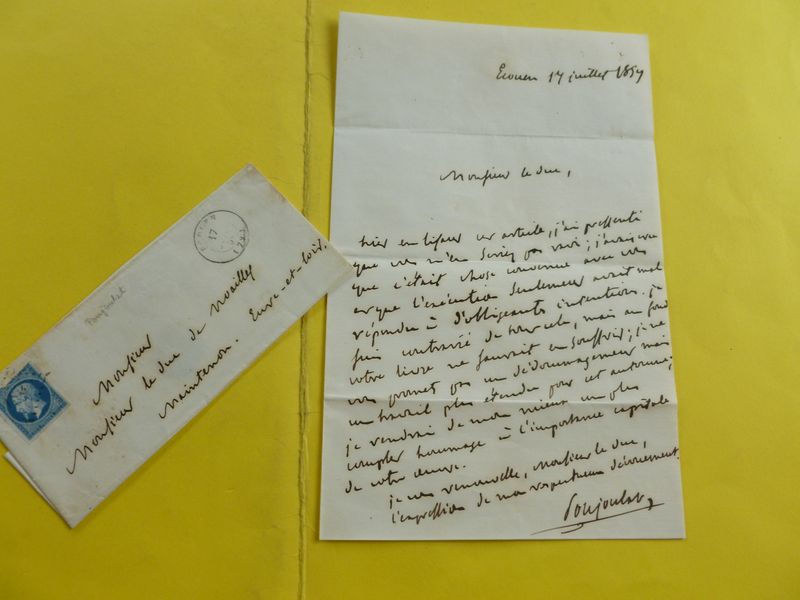 Ecouen 17 juillet 1857
Monsieur le duc,
hier en lisant cet article, j'ai pressenti
que vous m'en seriez pas ravi; j'avais cru
que c'était chose convenue avec vous
et que l'exécution seulement avait mal
répondu à d'obligeantes intentions. je
suis contrarié de tout cela, mais au fond
votre livre ne saurait en souffrir; je ne
vous promet pas un dédommagement mais
un travail plus étendu pour cet automne;
je rendrai de mon mieux un plus
complet hommage à l'importance capitale
de votre œuvre.
je vous renouvelle, Monsieur le duc,
l'expression de mon respectueux dévouement.
Poujoulat
ECOUEN
17
Poujoulat
Monsieur
Monsieur le duc de Noailles
Maintenon. Eure-et-Loir.